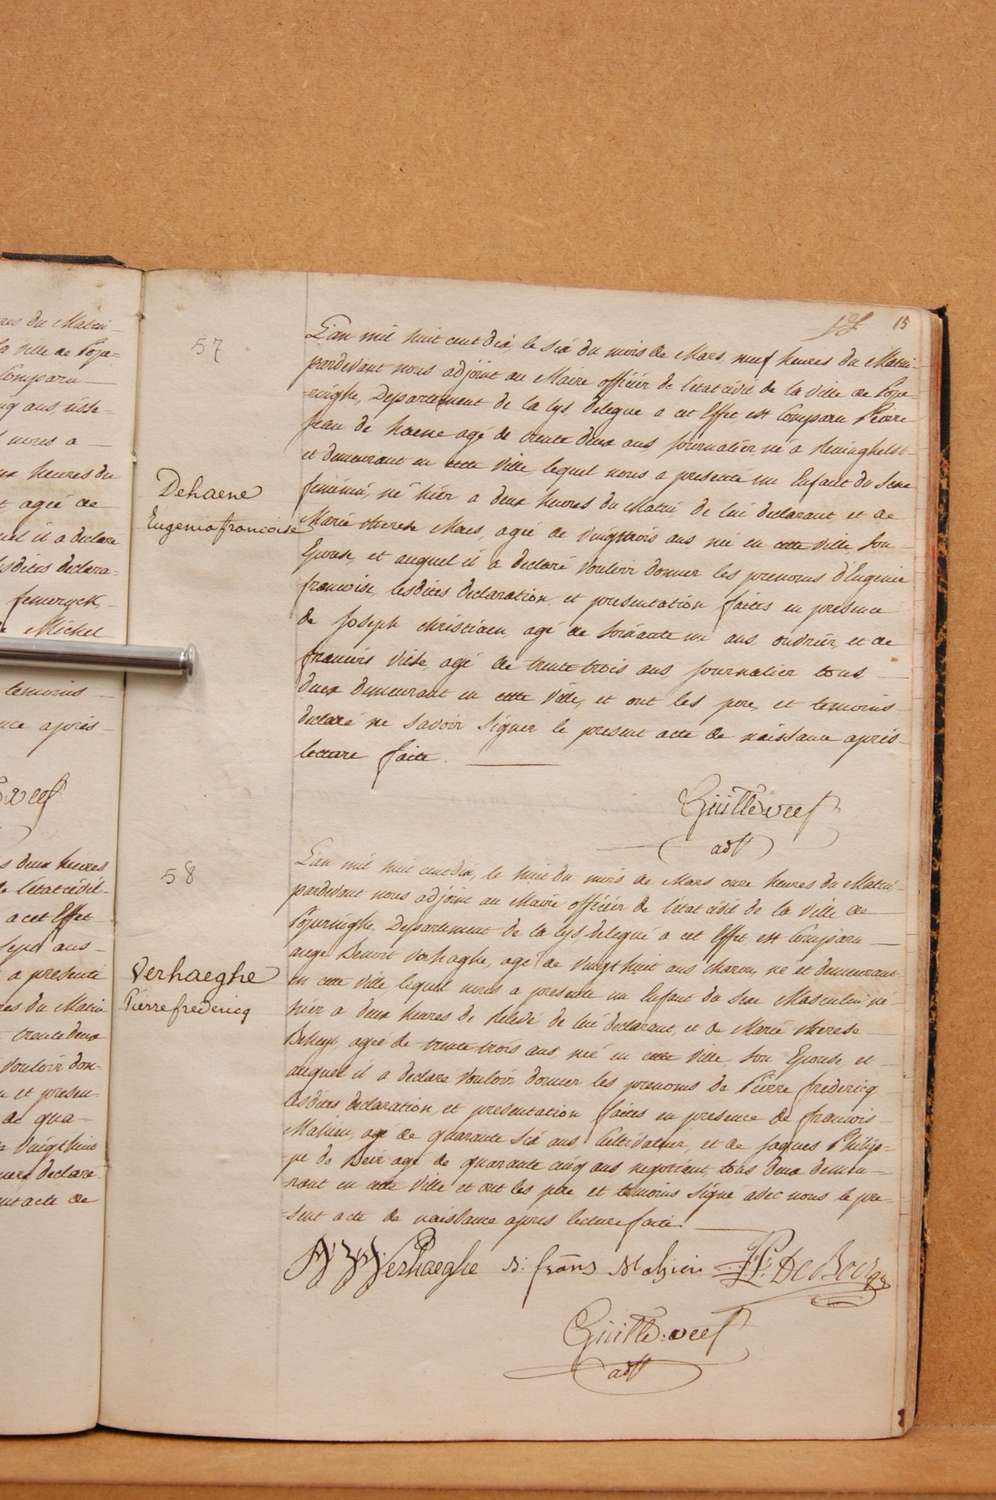 ans du Matin
la ville de Pope-
Comparu
nq ans, tisse-
nous a
heures du
agé de
quel il a declaré
lesdites declara-
femeryck,
Michel
temoins
après
deux heures
de l'etat civil
a cet Effet
Sept ans
a presenté
heures du Matin
trente deux
vouloir don-
et presen-
de qua-
Vingt huit
declaré
acte de
15
57
Dehaene
Eugenia francoise
L'an mil huit cent dix le six du mois de Mars neuf heures du Matin
pardevant nous adjoint au Maire officier de l'etat civil de la Ville de Pope-
ringhe, Departement de la Lys delegué a cet Effet est Comparu Pierre
Jean de haene agé de trente deux ans journalier né a Reninghelst
et demeurant en cette Ville lequel nous a presenté un Enfant du Sexe
feminin, né hier a deux heures du Matin de lui declarant et de
Marie therese Maes, agée de vingt trois ans née en cette ville, Son
Epouse, et auquel il a declaré vouloir donner les prenoms d'Eugenie
francoise, lesdites declaration, et presentation faites en presence
de Joseph christiaen agé de soixante un ans ouvrier, et de
francois agé de trente trois ans journalier tous
deux demeurant en cette Ville, et ont les pere, et temoins
declaré ne savoir Signer le present acte de naissance après
lecture faite.
adj
58
Verhaeghe
Pierre fredericq
L'an mil huit cent dix, le huit du mois de Mars onze heures du Matin
pardevant nous adjoint au Maire officier de l'etat civil de la Ville de
Poperinghe, Departement de la Lys delegué a cet Effet est Comparu
ange Benoit Verhaghe, agé de Vingt huit ans charon, né et demeurant
en cette ville, lequel nous a presenté un Enfant du Sexe Masculin né
hier a deux heures de Relevé de lui declarant, et de Marie therese
agée de trente trois ans née en cette ville Son Epouse et
auquel il a declaré vouloir donner les prenoms de Pierre fredericq
lesdites declaration, et presentation faites en presence de francois
Mahieu agé de quarante Six ans Cultivateur, et de Jaques Philip-
pe de agé de quarante cinq ans negociant tous deux demeu-
rant en cette Ville et ont les pere et temoins Signé avec nous le pre-
sent acte de naissance après lecture faite.
Verhaeghe frans Mahieu De
adj